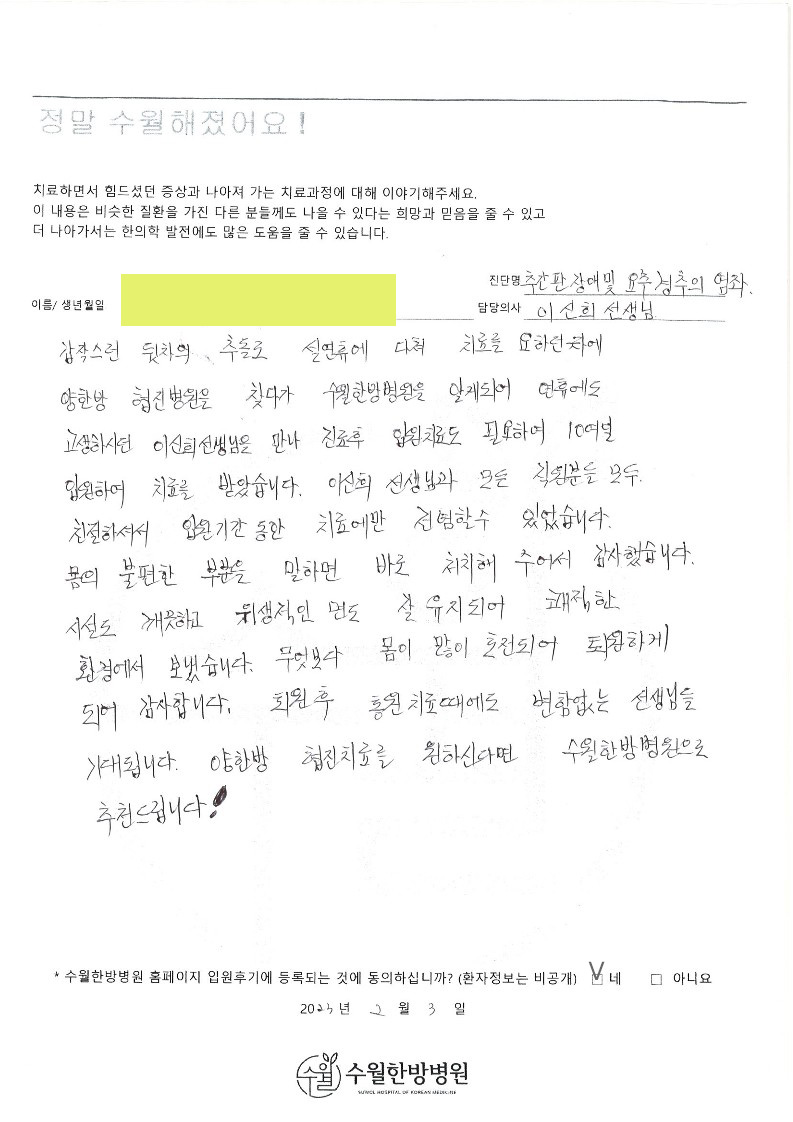 정말 수월해졌어요!
치료하면서 힘드셨던 증상과 나아져 가는 치료과정에 대해 이야기해주세요.
이 내용은 비슷한 질환을 가진 다른 분들께도 나을 수 있다는 희망과 믿음을 줄 수 있고
더 나아가서는 한의학 발전에도 많은 도움을 줄 수 있습니다.
진단명 추간판장애및 요추경추의 염좌.
이름/ 생년월일
담당의사 이선희 선생님
갑작스런 뒷차의 추돌로 설연휴에 다쳐 치료를 요하던차에
양한방 협진병원을 찾다가 수월한방병원을 알게되어 연휴에도
고생하시던 이선희선생님을 만나 진료후 입원치료도 필요하여 10여일
입원하여 치료를 받았습니다. 이선희 선생님과 모든 직원분들 모두.
친절하셔서 입원기간 동안 치료에만 전념할수 있었습니다.
몸의 불편한 부분을 말하면 바로 처치해 주어서 감사했습니다.
시설도 깨끗하고 위생적인 면도 잘 유지되어 쾌적한
환경에서 보냈습니다. 무엇보다 몸이 많이 호전되어 퇴원하게
되어 감사합니다. 퇴원후 통원치료때에도 변함없는 선생님들
기대됩니다. 양한방 협진치료를 원하신다면 수월한방병원으로
추천드립니다!
* 수월한방병원 홈페이지 입원후기에 등록되는 것에 동의하십니까? (환자정보는 비공개) V 네 □ 아니요
2023 년 2 월 3 일
수월 수월한방병원
SUWOL HOSPITAL OF KOREAN MEDICINE